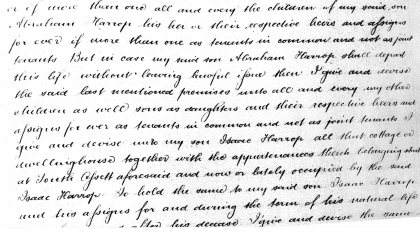 or if more than one all and every the children of my said son
Abraham Harrop his her or their respective heirs and assigns
for ever if more than one as tenants in common and not as joint
tenants But in case my said son Abraham Harrop shall depart
this life without leaving lawful issue then I give and devise
the said last mentioned premises unto all and every my other
children as well sons as daughters and their respective heirs and
assigns for ever as tenants in common and not as joint tenants I
give and devise unto my son Isaac Harrop all that cottage or
dwellinghouse together with the appurtenances thereto belonging situate
at South Ossett aforesaid and now or lately occupied by the said
Isaac Harrop. To hold the same to my said son Isaac Harrop
and his assigns for and during the term of his natural life
after his decease I give and devise the same